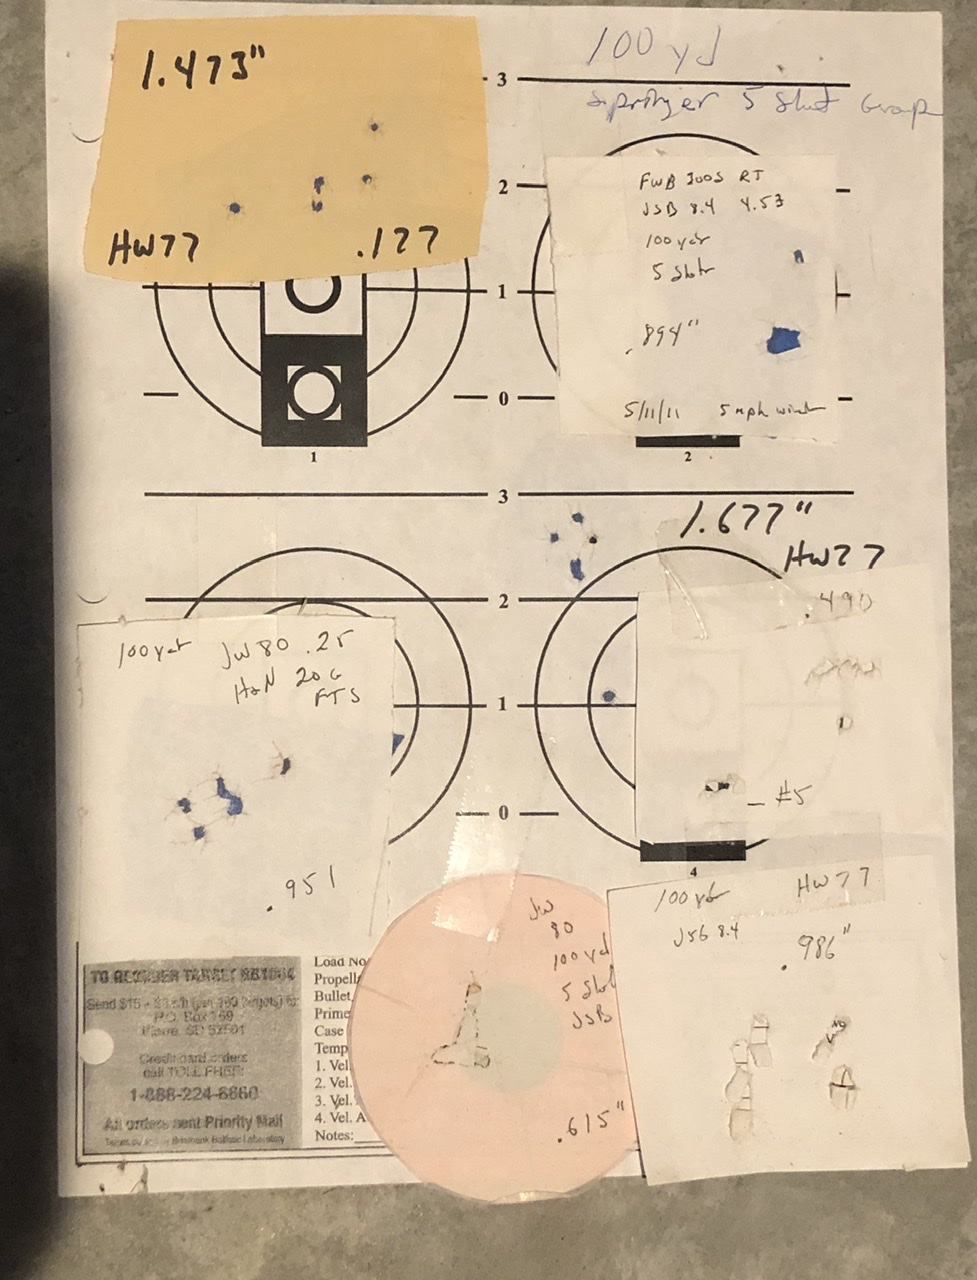 1.473"
HW77 .177
100 yd
Springer 5 Shot Group
3
2
1
0
FWB 300S RT
JSB 8.4 4.53
100 yds
5 Shots
.894"
5/11/11 5 mph wind
1
2
3
2
1
0
1.677"
HW77
.490
- #5
4
100 yds JW80 .25
H&N 20G
FTS
.951
JW
80
100 yd
5 Shot
JSB
.615"
100 yds HW77
JSB 8.4
.986"
TO REORDER TARGET
P.O. Box 169
Pierre, SD 57501
Credit card orders
call TOLL FREE:
1-888-224-6660
All orders sent Priority Mail
Load No
Propell
Bullet
Prime
Case
Temp
1. Vel
2. Vel.
3. Vel.
4. Vel. A
Notes: